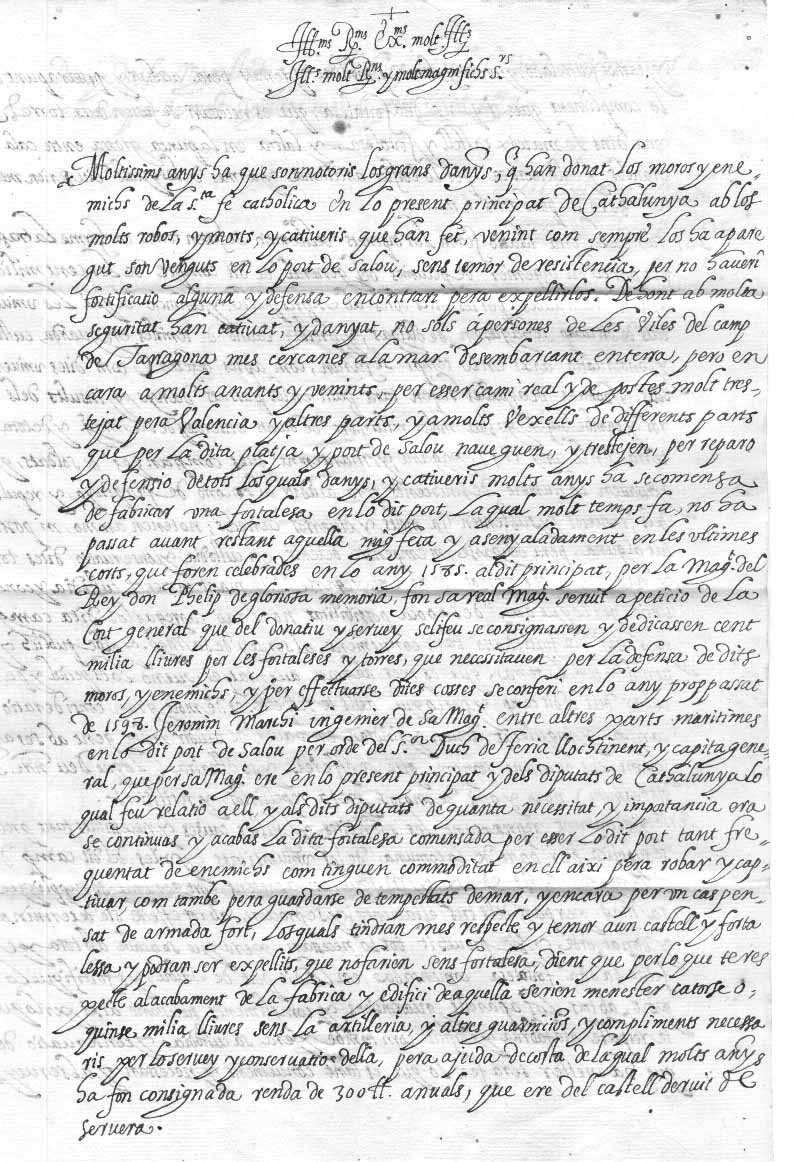 Ill.ms R.ms Ex.ms molt Ill.s
Ill.s molt R.ns y molt magnifichs s.rs
Moltissims anys ha que son notoris los grans danys, q̃ han donat los moros y ene-
michs de la s.ta fe catholica en lo present principat de Cathalunya ab los
molts robos, y morts, y cativeris que han fet, venint com sempre los ha apare
gut son venguts en lo port de Salou, sens temor de resistencia, per no haveri
fortificatio alguna y defensa encontrari pera expellirlos. De hont ab molta
seguritat han cativat, y danyat, no sols á persones de les Viles del camp
de Tarragona mes cercanes a la mar desembarcant enterra, pero en
cara a molts anants y venints, per esser cami real y de postes molt tres-
tejat pera Valencia y altres parts, y a molts Vexells de differents parts
que per la dita platja y port de Salou naveguen, y trestejen, per reparo
y defensio de tots los quals danys, y cativeris molts anys ha se comensa
de fabricar una fortalesa en lo dit port, la qual molt temps fa, no ha
passat avant restant aquella mig feta y asenyaladament en les ultimes
corts, que foren celebrades en lo any 1585. al dit principat, per la Mag.t del
Rey don Phelip de gloriosa memoria, fon sa real Mag.t servit a peticio de la
Cort general que del donatiu y servey selifeu se consignassen y dedicassen cent
milia lliures per les fortaleses y torres, que necessitaven per la defensa de dits
moros, y enemichs, y per effectuarse dites coses se conferi en lo any prop passat
de 1598. Jeronim Marchi ingenier de sa Mag.t entre altres parts maritimes
en lo dit port de Salou per orde del s.or Duch de feria llochtinent, y capita gene-
ral, que per sa Mag.t ere en lo present principat y dels diputats de Cathalunya lo
qual feu relatio a ell y als dits diputats de quanta necessitat, y importancia era
se continuas y acabas la dita fortalesa comensada per esser lo dit port tant fre-
quentat de enemichs com tinguen commoditat en ell aixi pera robar y cap-
tivar com tambe pera guardarse de tempestats de mar, y encara per un cas pen-
sat de armada fort, los quals tindran mes respecte y temor a un castell y forta
lessa y podran ser expellits, que no farien sens fortalesa, dient que per lo que te res
pecte al acabament de la fabrica y edifici de aquella serien menester catorse o
quinse milia lliures sens la artilleria, y altres guarnicions, y compliments necessa
ris per lo servey y conservatio della, pera ajuda de costa de la qual molts anys
ha fon consignada renda de 300 ll. anuals, que ere del castell deruit de
servera.